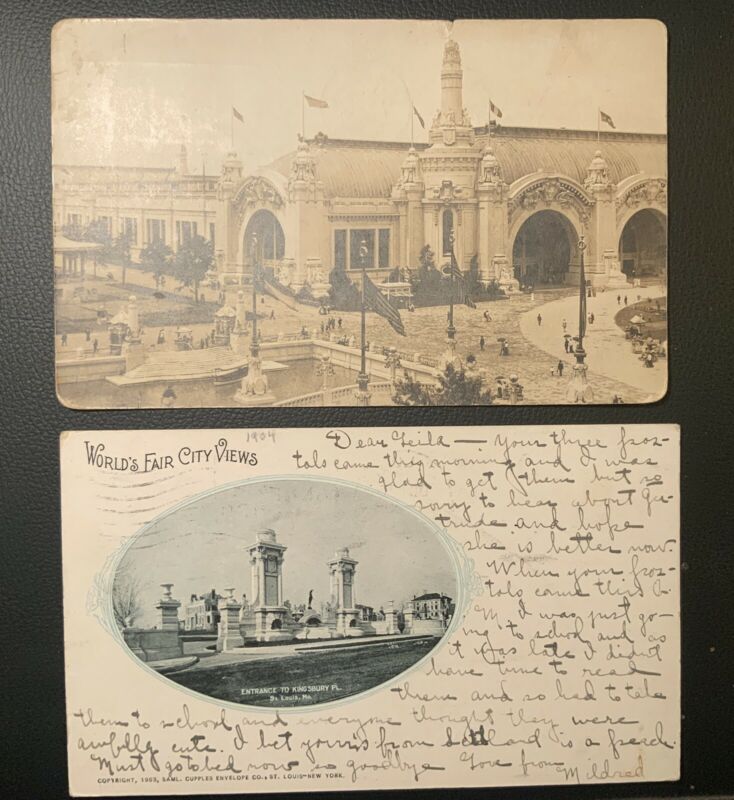 1904
WORLD'S FAIR CITY VIEWS
Dear Leila — Your three pos-
tals came this morning and I was
glad to get them but so
sorry to hear about Ger-
trude and hope
she is better now.
When your pos-
tals came this A.
M. I was just go-
ing to school and as
it was late I didn't
have time to read
them and so had to take
them to school and everyone thought they were
awfully cute. I bet yours from Scotland is a peach.
Must go to bed now so goodbye Love from
Mildred
ENTRANCE TO KINGSBURY PL.
ST. LOUIS, MO.
COPYRIGHT, 1903, SAML. CUPPLES ENVELOPE CO., ST. LOUIS-NEW YORK.